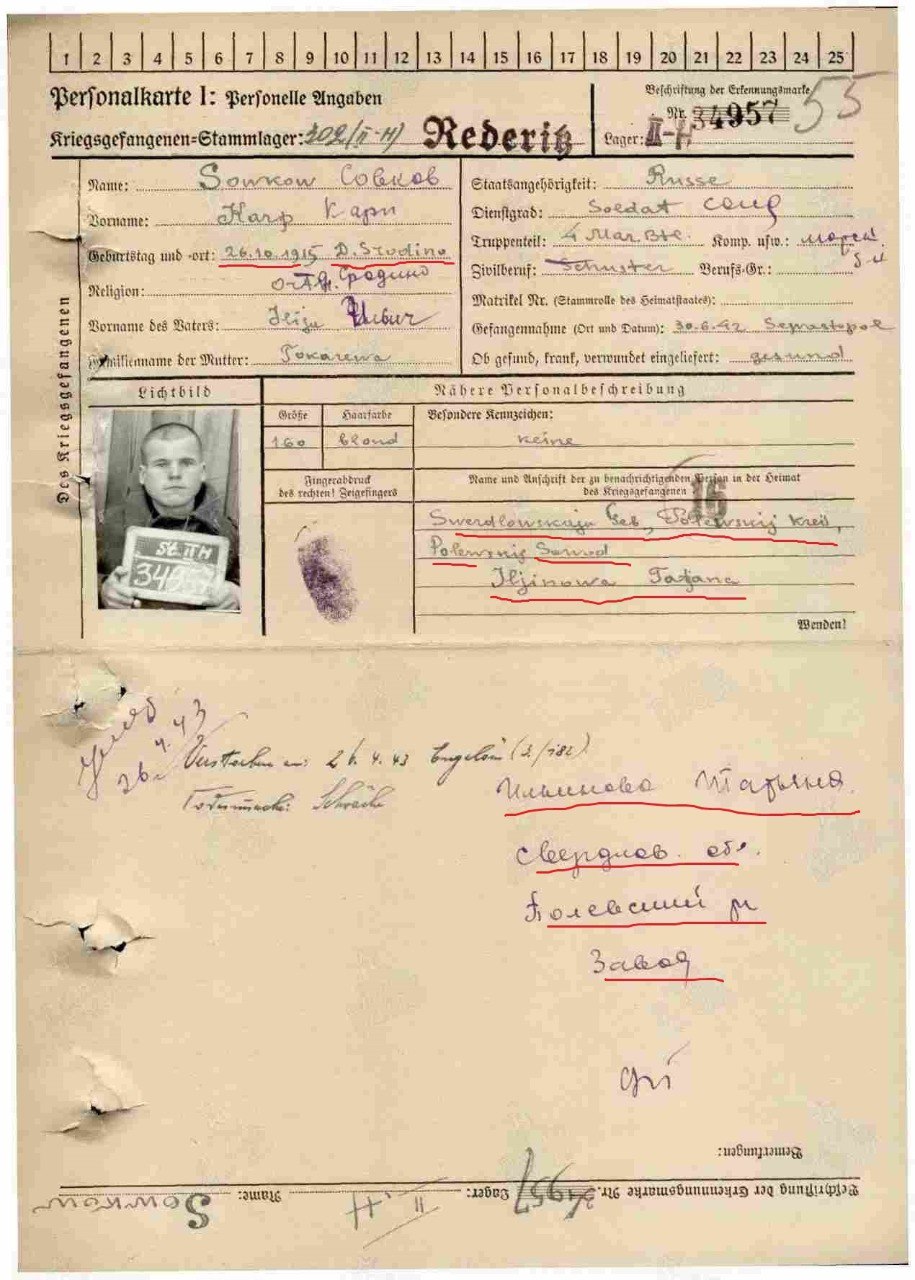 1 2 3 4 5 6 7 8 9 10 11 12 13 14 15 16 17 18 19 20 21 22 23 24 25
Personalkarte I: Personelle Angaben
Beschriftung der Erkennungsmarke
Nr. 34957
55
Kriegsgefangenen=Stammlager: 302/(II-H) Rederitz
Lager: II-H
Des Kriegsgefangenen
Name: Sowkow Совков
Vorname: Karp Карп
Geburtstag und -ort: 26.10.1915 D. Srodino
Religion: Сродино
Vorname des Vaters: Ilija
Familienname der Mutter: Tokarewa
Staatsangehörigkeit: Russe
Dienstgrad: Soldat солд
Truppenteil: 4 Mar. Btl. Komp. usw.: морск.
Zivilberuf: Schuster Berufs-Gr.:
Matrikel Nr. (Stammrolle des Heimatstaates):
Gefangennahme (Ort und Datum): 30.6.42 Sepastopol
Ob gesund, krank, verwundet eingeliefert: gesund
Lichtbild
Nähere Personalbeschreibung
Größe
Haarfarbe
Besondere Kennzeichen:
160
blond
keine
Fingerabdruck
des rechten! Zeigefingers
Name und Anschrift der zu benachrichtigenden Person in der Heimat
des Kriegsgefangenen
16
Swerdlowskaja Geb, Polewskij Kreis,
Polewskij Sawod
Iljinowa Tatjana
St. II H
34957
Wenden!
26.4.43
Verstorben am: 26.4.43
Todesursache: Schwäche
Ильинова Татьяна.
Свердлов. обл.
Полевский р
Завод
Bemerkungen:
Beschriftung der Erkennungsmarke Nr. 34957 Lager: II H Name: Sowkow